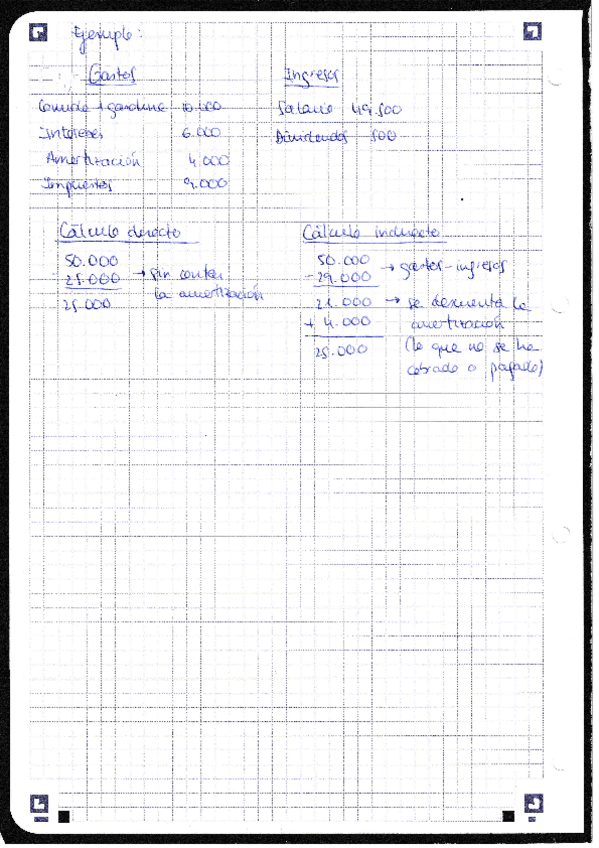 Ejemplo:
Gastos
Comida + gasolina 10.000
Intereses 6.000
Amortización 4.000
Impuestos 9.000
Ingresos
Salario 49.500
Dividendos 500
Cálculo directo
50.000
- 25.000 → sin contar
la amortización
25.000
Cálculo indirecto
50.000
- 29.000 → gastos-ingresos
21.000 → se descuenta la
+ 4.000 amortización
25.000 (lo que no se ha
cobrado o pagado)